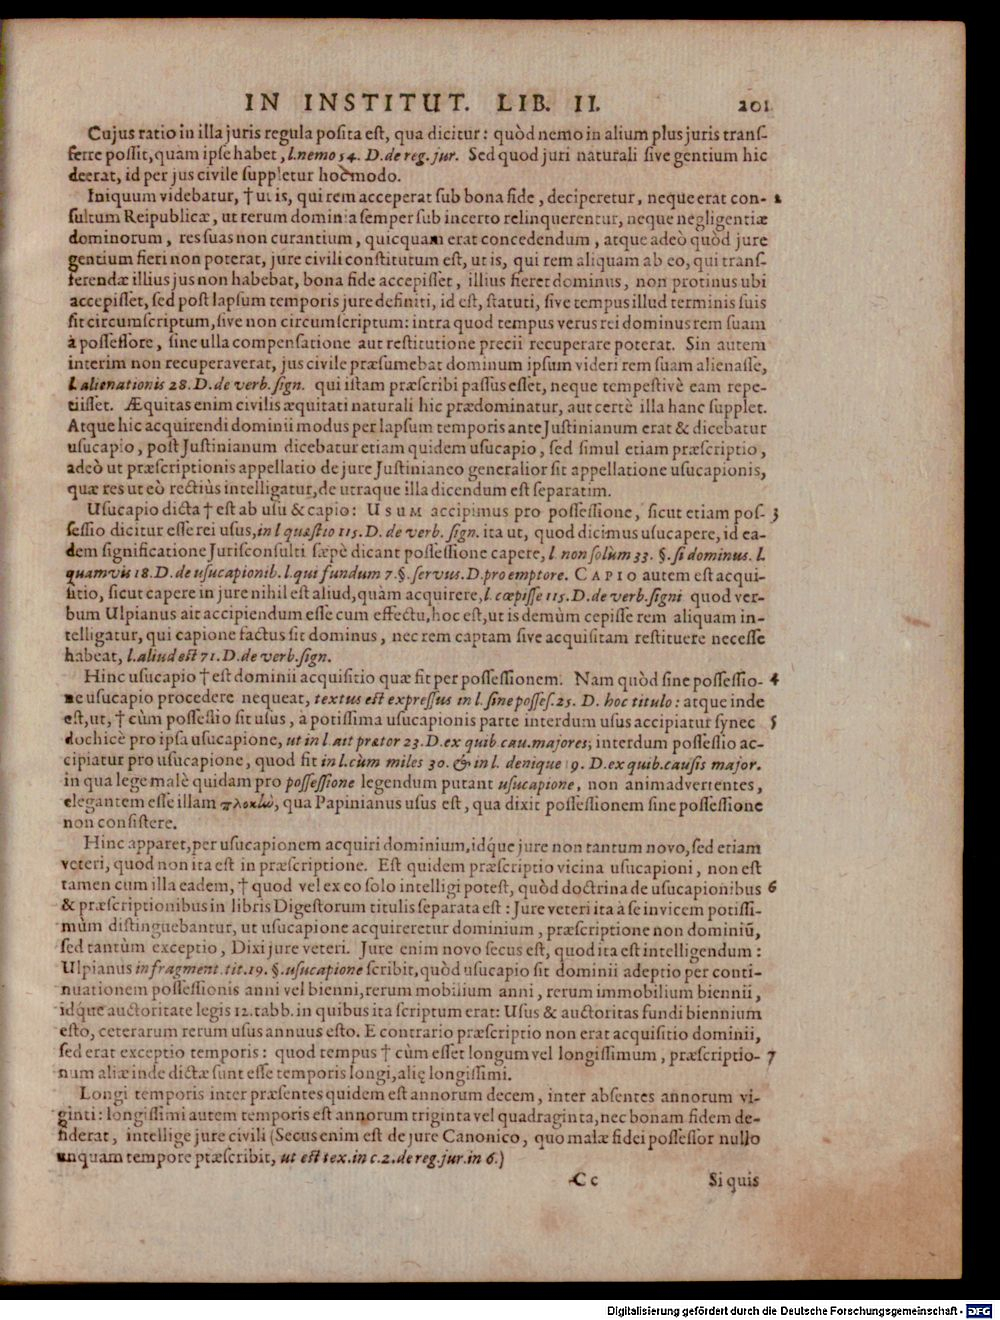 IN INSTITUT. LIB. II. 201
Cujus ratio in illa juris regula posita est, qua dicitur: quòd nemo in alium plus juris trans-
ferre possit, quam ipse habet, l. nemo 54. D. de reg. jur. Sed quod juri naturali sive gentium hic
deerat, id per jus civile suppletur hoc modo.
Iniquum videbatur, † ut is, qui rem acceperat sub bona fide, deciperetur, neque erat con- 2
sultum Reipublicæ, ut rerum dominia semper sub incerto relinquerentur, neque negligentiæ
dominorum, res suas non curantium, quicquam erat concedendum, atque adeò quòd jure
gentium fieri non poterat, jure civili constitutum est, ut is, qui rem aliquam ab eo, qui trans-
ferendæ illius jus non habebat, bona fide accepisset, illius fieret dominus, non protinus ubi
accepisset, sed post lapsum temporis jure definiti, id est, statuti, sive tempus illud terminis suis
sit circumscriptum, sive non circumscriptum: intra quod tempus verus rei dominus rem suam
à possessore, sine ulla compensatione aut restitutione precii recuperare poterat. Sin autem
interim non recuperaverat, jus civile præsumebat dominum ipsum videri rem suam alienasse,
l. alienationis 28. D. de verb. sign. qui istam præscribi passus esset, neque tempestivè eam repe-
tiisset. Æquitas enim civilis æquitati naturali hic prædominatur, aut certè illa hanc supplet.
Atque hic acquirendi dominii modus per lapsum temporis ante Justinianum erat & dicebatur
usucapio, post Justinianum dicebatur etiam quidem usucapio, sed simul etiam præscriptio,
adeò ut præscriptionis appellatio de jure Justinianeo generalior sit appellatione usucapionis,
quæ res ut eò rectiùs intelligatur, de utraque illa dicendum est separatim.
Usucapio dicta † est ab usu & capio: USUM accipimus pro possessione, sicut etiam pos- 3
sessio dicitur esse rei usus, in l quæstio 115. D. de verb. sign. ita ut, quod dicimus usucapere, id ea-
dem significatione Jurisconsulti sæpè dicant possessione capere, l. non solùm 33. §. si dominus. l.
quamvis 18. D. de usucapionib. l. qui fundum 7. §. servus. D. pro emptore. CAPIO autem est acqui-
sitio, sicut capere in jure nihil est aliud, quàm acquirere, l. cœpisse 115. D. de verb. signi quod ver-
bum Ulpianus ait accipiendum esse cum effectu, hoc est, ut is demùm cepisse rem aliquam in-
telligatur, qui capione factus sit dominus, nec rem captam sive acquisitam restituere necesse
habeat, l. aliud est 71. D. de verb. sign.
Hinc usucapio † est dominii acquisitio quæ fit per possessionem. Nam quòd sine possessio- 4
ne usucapio procedere nequeat, textus est expressus in l. sine posses. 25. D. hoc titulo: atque inde
est, ut, † cùm possessio sit usus, à potissima usucapionis parte interdum usus accipiatur synec 5
dochicè pro ipsa usucapione, ut in l. ait prætor 23. D. ex quib. cau. majores; interdum possessio ac-
cipiatur pro usucapione, quod fit in l. cùm miles 30. & in l. denique 19. D. ex quib. causis major.
in qua lege malè quidam pro possessione legendum putant usucapione, non animadvertentes,
elegantem esse illam πλοκὼ, qua Papinianus usus est, qua dixit possessionem sine possessione
non consistere.
Hinc apparet, per usucapionem acquiri dominium, idq́ue jure non tantum novo, sed etiam
veteri, quod non ita est in præscriptione. Est quidem præscriptio vicina usucapioni, non est
tamen cum illa eadem, † quod vel ex eo solo intelligi potest, quòd doctrina de usucapionibus 6
& præscriptionibus in libris Digestorum titulis separata est: Jure veteri ita à se invicem potissi-
mùm distinguebantur, ut usucapione acquireretur dominium, præscriptione non dominiũ,
sed tantùm exceptio, Dixi jure veteri. Jure enim novo secus est, quod ita est intelligendum:
Ulpianus in fragment. tit. 19. §. usucapione scribit, quòd usucapio sit dominii adeptio per conti-
nuationem possessionis anni vel bienni, rerum mobilium anni, rerum immobilium biennii,
idq́ue auctoritate legis 12. tabb. in quibus ita scriptum erat: Usus & auctoritas fundi biennium
esto, ceterarum rerum usus annuus esto. E contrario præscriptio non erat acquisitio dominii,
sed erat exceptio temporis: quod tempus † cùm esset longum vel longissimum, præscriptio- 7
num aliæ inde dictæ sunt esse temporis longi, alię longissimi.
Longi temporis inter præsentes quidem est annorum decem, inter absentes annorum vi-
ginti: longissimi autem temporis est annorum triginta vel quadraginta, nec bonam fidem de-
siderat, intellige jure civili (Secus enim est de jure Canonico, quo malæ fidei possessor nullo
unquam tempore præscribit, ut est tex. in c. 2. de reg. jur. in 6.)
Cc Si quis
Digitalisierung gefördert durch die Deutsche Forschungsgemeinschaft - DFG